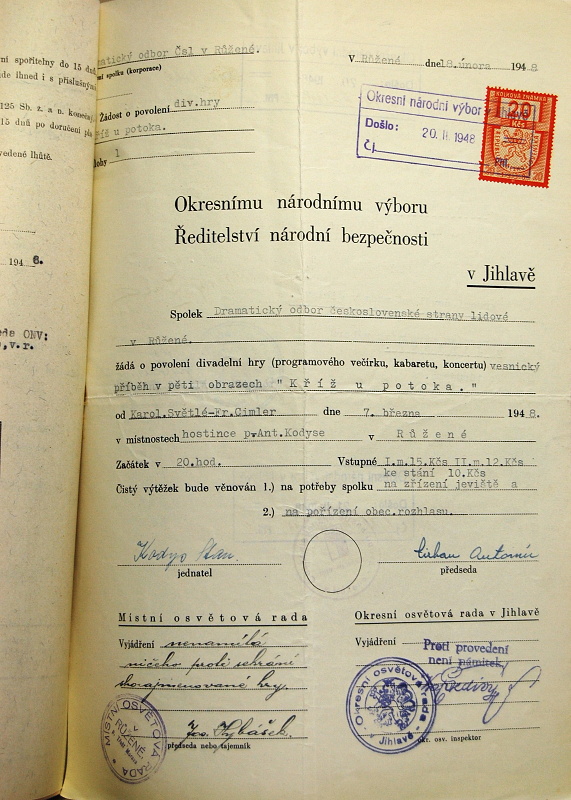 ní spořitelny do 15 dnů
de ihned i s příslušným
125 Sb. z. a n. konečný
15 dnů po doručení
vedené lhůtě.
194 8.
ONV:
,v.r.
matický odbor Čsl v Růžené.
spolku (korporace)
V Růžené dne 18.února 1948
Žádost o povolení div.hry
říž u potoka.
lohy 1
Okresní národní výbor
Došlo: 20. II. 1948
Čj.
KOLKOVÁ ZNÁMKA
20
Kčs
Okresnímu národnímu výboru
Ředitelství národní bezpečnosti
v Jihlavě
Spolek Dramatický odbor československé strany lidové
v Růžené.
žádá o povolení divadelní hry (programového večírku, kabaretu, koncertu) vesnický
příběh v pěti obrazech " Kříž u potoka."
od Karol.Světlé-Fr.Cimler dne 7. března 1948.
v místnostech hostince p.Ant.Kodyse v Růžené
Začátek v 20.hod. Vstupné I.m.15.Kčs II.m.12.Kčs
ke stání 10.Kčs
Čistý výtěžek bude věnován 1.) na potřeby spolku na zřízení jeviště a
2.) na pořízení obec.rozhlasu.
jednatel
předseda
Místní osvětová rada
Okresní osvětová rada v Jihlavě
Vyjádření nenamítá
ničeho proti sehrání
shorajmenované hry.
Vyjádření Proti provedení
není námitek
MÍSTNÍ OSVĚTOVÁ RADA
v
RŮŽENÉ
předseda nebo tajemník
Okresní osvětová rada
v Jihlavě
okr. osv. inspektor